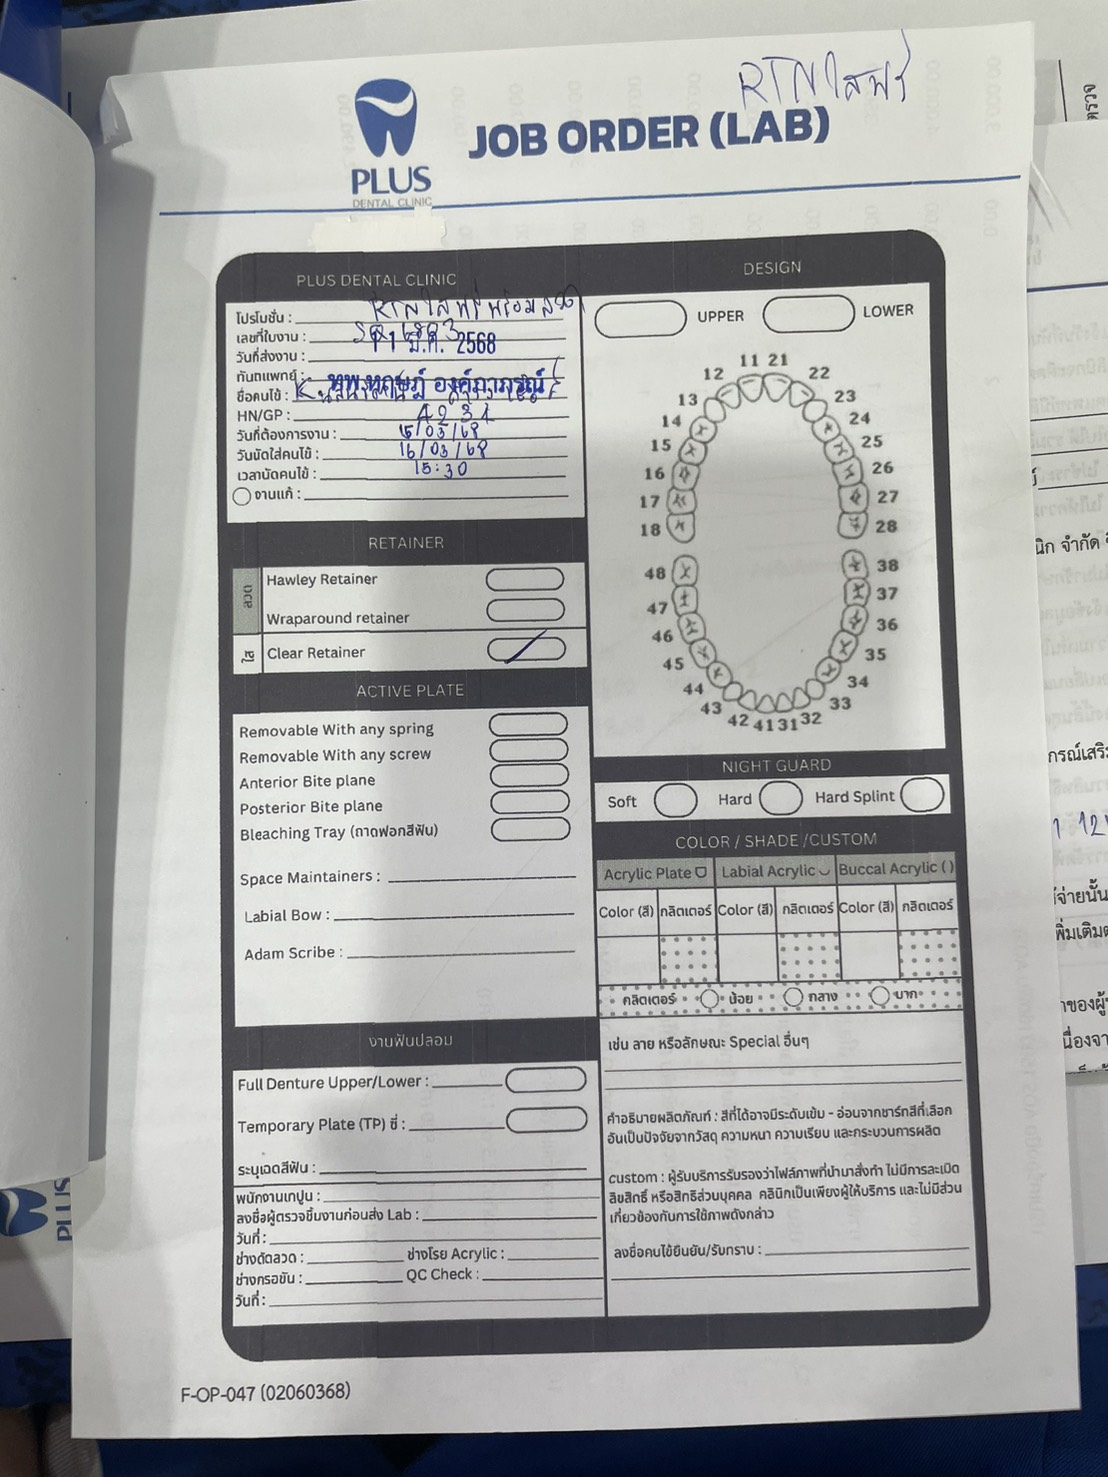 RTN ใสฟรี
PLUS
DENTAL CLINIC
JOB ORDER (LAB)
PLUS DENTAL CLINIC
โปรโมชั่น : RTN ใส ฟรี พร้อม
เลขที่ใบงาน :
วันที่ส่งงาน : 11 มี.ค. 2568
ทันตแพทย์ :
ชื่อคนไข้ :
HN/GP : 4231
วันที่ต้องการงาน : 15/03/68
วันนัดใส่คนไข้ : 16/03/68
เวลานัดคนไข้ : 15:30
งานแก้ :
RETAINER
ลวด
Hawley Retainer
Wraparound retainer
ใส
Clear Retainer
ACTIVE PLATE
Removable With any spring
Removable With any screw
Anterior Bite plane
Posterior Bite plane
Bleaching Tray (ถาดฟอกสีฟัน)
Space Maintainers :
Labial Bow :
Adam Scribe :
งานฟันปลอม
Full Denture Upper/Lower :
Temporary Plate (TP) ซี่ :
ระบุเฉดสีฟัน :
พนักงานเทปูน :
ลงชื่อผู้ตรวจชิ้นงานก่อนส่ง Lab :
วันที่ :
ช่างดัดลวด : ช่างโรย Acrylic :
ช่างกรอขัน : QC Check :
วันที่ :
DESIGN
UPPER LOWER
11 21
12 22
13 23
14 24
15 25
16 26
17 27
18 28
48 38
47 37
46 36
45 35
44 34
43 33
42 41 31 32
NIGHT GUARD
Soft Hard Hard Splint
COLOR / SHADE /CUSTOM
Acrylic Plate Labial Acrylic Buccal Acrylic ( )
Color (สี) กลิตเตอร์ Color (สี) กลิตเตอร์ Color (สี) กลิตเตอร์
กลิตเตอร์ น้อย กลาง มาก
เช่น ลาย หรือลักษณะ Special อื่นๆ
คำอธิบายผลิตภัณฑ์ : สีที่ได้อาจมีระดับเข้ม - อ่อนจากชาร์ทสีที่เลือก
อันเป็นปัจจัยจากวัสดุ ความหนา ความเรียบ และกระบวนการผลิต
custom : ผู้รับบริการรับรองว่าไฟล์ภาพที่นำมาสั่งทำ ไม่มีการละเมิด
ลิขสิทธิ์ หรือสิทธิส่วนบุคคล คลินิกเป็นเพียงผู้ให้บริการ และไม่มีส่วน
เกี่ยวข้องกับการใช้ภาพดังกล่าว
ลงชื่อคนไข้ยืนยัน/รับทราบ :
F-OP-047 (02060368)